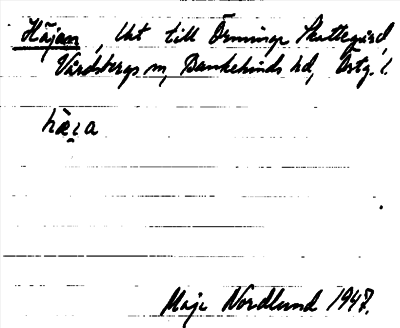 Häjan, lht till Örminge Skattegård,
Vårdsbergs sn, Bankekinds hd, Östg. l.
hä̀ɩ̯a
Maja Nordlund 1947.